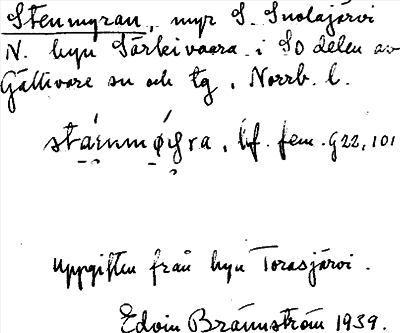 Stenmyran, myr S. Suolajärvi
N. byn Särkivaara i SO delen av
Gällivare sn och tg, Norrb. l.
bf. fem. G22,101
Uppgiften från byn Torasjärvi.
Edvin Brännström 1939.